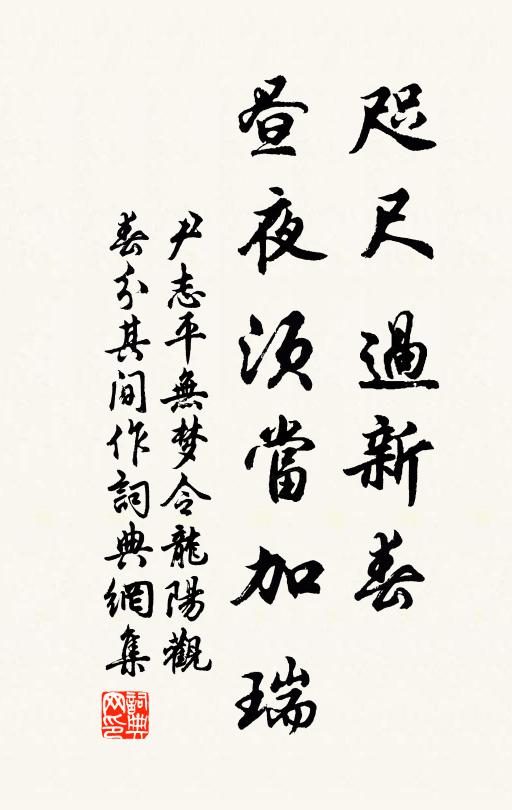 咫尺過新春
昼夜須當加瑞
尹志平無梦令龍陽觀
春分其间作詞典網集
詞典
网印